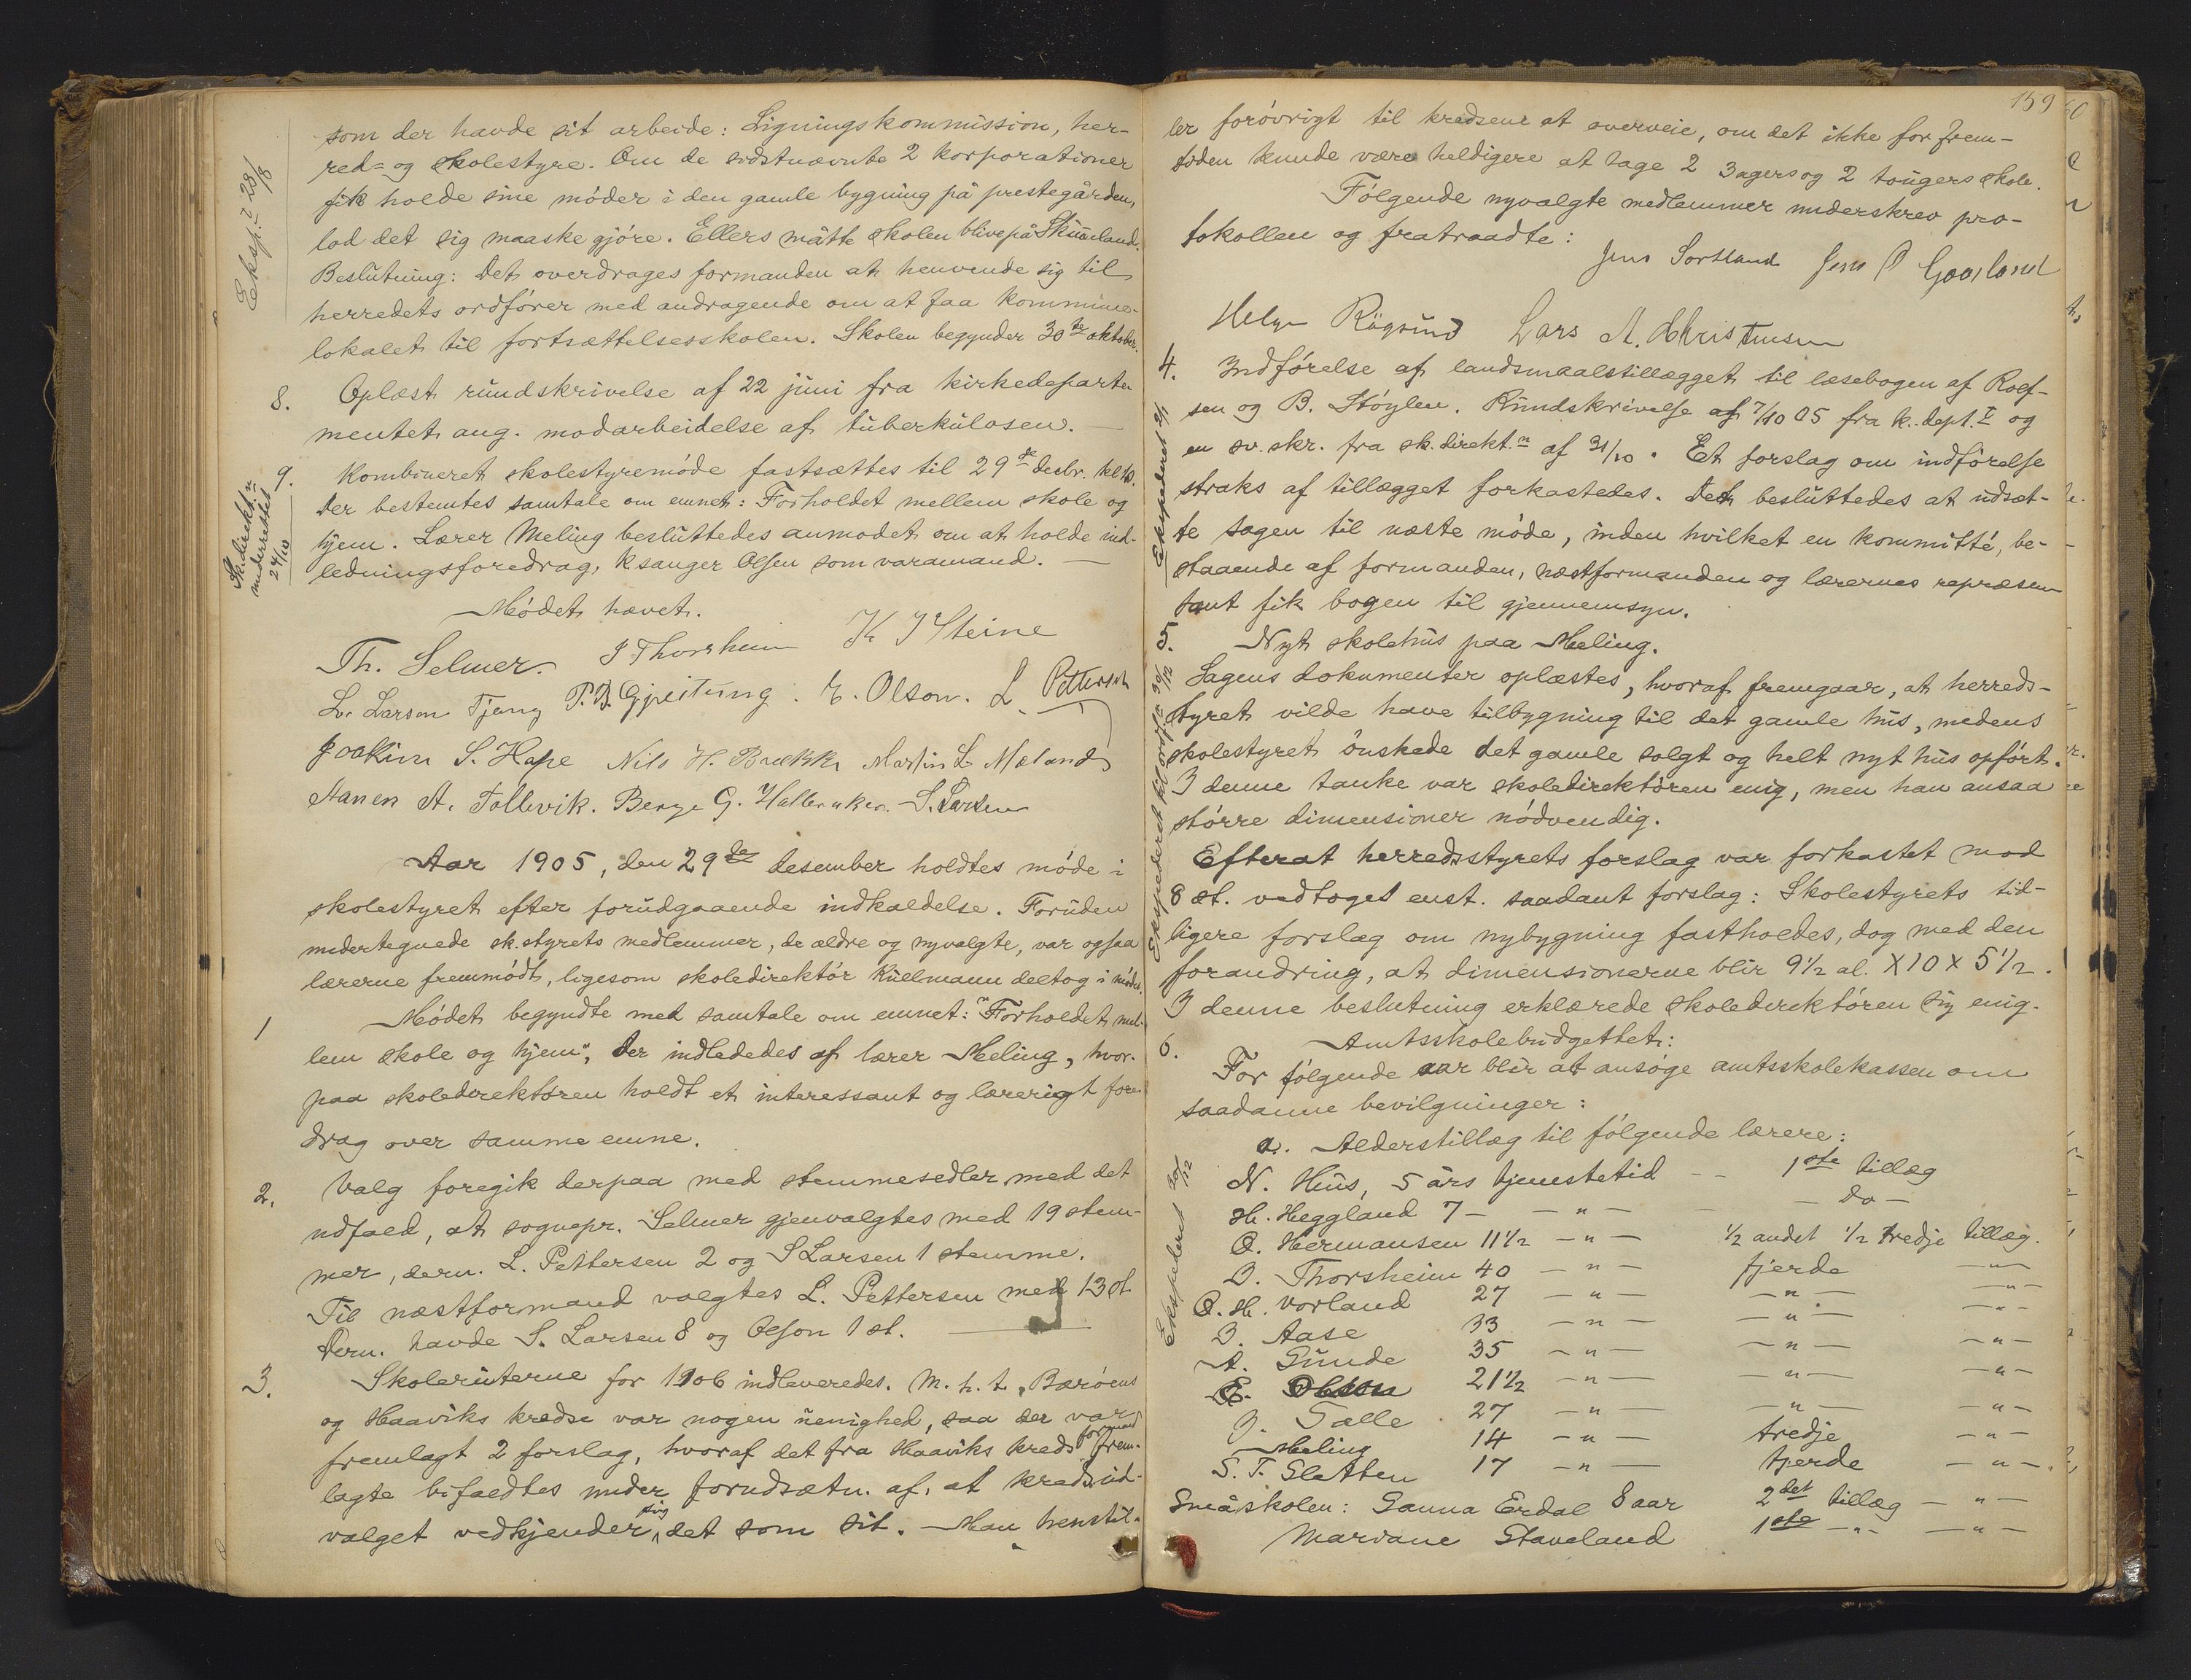 som der havde sit arbeide: Ligningskommission, her-
red- og skolestyre. Om de sidstnævnte 2 korporationer
fik holde sine möder i den gamle bygning på prestegården,
lod det sig maaske gjöre. Ellers måtte skolen blive på
Beslutning: Det overdrages formanden at henvende sig til
herredets ordförer med andragende om at faa kommune-
lokalet til fortsættelsesskolen. Skolen begynder 30te oktober.
Eksp. I 28/8
8. Oplæst rundskrivelse af 22 juni fra kirkedeparte-
mentet ang. modarbeidelse af tuberkulosen. —
9. Kombineret skolestyremöde fastsættes til 29de decbr. kl 10.
Der bestemtes samtale om emnet: Forholdet mellem skole og
hjem. Lærer Meling besluttedes anmodet om at holde ind-
ledningsforedrag, k sanger Olsen som varamand. —
Sk. direkt.n
underrettet
24/10
Mödet hævet.
Th. Selmer. I Thorsheim K I Steine
L. Larsen Tjong P. B. Gjeitung. E. Olson. L. Pettersen
Joakim S. Hope Nils H. Brekke Martin L. Mæland
Aanen A. Tollevik. Berge G. S. Larsen
Aar 1905, den 29de desember holdtes möde i
skolestyret efter forudgaaende indkaldelse. Foruden
undertegnede sk.styrets medlemmer, de ældre og nyvalgte, var ogsaa
lærerne fremmödt, ligesom skoledirektör Küelmann deltog i mödet.
1 Mödet begyndte med samtale om emnet: "Forholdet mel-
lem skole og hjem", der indlededes af lærer Meling, hvor-
paa skoledirektören holdt et interessant og lærerigt fore-
drag over samme emne.
2. Valg foregik derpaa med stemmesedler med det
udfald, at sognepr. Selmer gjenvalgtes med 19 stem-
mer, dern. L. Pettersen 2 og S Larsen 1 stemme.
Til næstformand valgtes L. Pettersen med 13 st.
Dern. havde S. Larsen 8 og Olson 1 st. —
3. Skoleruterne for 1906 indleveredes. M. h. t. Baröens
og Haaviks kredse var nogen uenighed, saa der var
fremlagt 2 forslag, hvoraf det fra Haaviks kreds formand frem-
lagte bifaldtes under forudsætn. af, at kredsud-
valget vedkjender sig det som sit. Man henstil-
159
ler forövrigt til kredsene at overveie, om det ikke for frem-
tiden kunde være heldigere at tage 2 3agers og 2 tougers skole.
Fölgende nyvalgte medlemmer underskrev pro-
tokollen og fratraadte:
Jens Sortland Jens Gaasland
Helge Rögsund Lars A. Christensen
4. Indförelse af landsmaalstillægget til læsebogen af Rolf-
sen og B. Stöylen. Rundskrivelse af 7/10 05 fra k. dept. I og
en sv. skr. fra sk. direkt.n af 31/10. Et forslag om indförelse
straks af tillægget forkastedes. Det besluttedes at udsæt-
te sagen til næste möde, inden hvilket en kommitté, be-
staaende af formanden, næstformanden og lærernes repræsen-
tant fik bogen til gjennemsyn.
Ekspederet 2/1
5. Nyt skolehus paa Meling.
Sagens dokumenter oplæstes, hvoraf fremgaar, at herreds-
styret vilde have tilbygning til det gamle hus, medens
skolestyret önskede det gamle solgt og helt nyt hus opfört.
I denne tanke var skoledirektören enig, men han ansaa
större dimensioner nödvendig.
Efterat herredsstyrets forslag var forkastet mod
8 st. vedtoges enst. saadant forslag: Skolestyrets tid-
ligere forslag om nybygning fastholdes, dog med den
forandring, at dimensionerne blir 9 1/2 al. X 10 X 5 1/2.
I denne beslutning erklærede skoledirektören sig enig.
Ekspederet til ordf. 30/12
6. Amtsskolebudgettet:
For fölgende aar blir at ansöge amtsskolekassen om
saadanne bevilgninger:
a. Alderstillæg til fölgende lærere:
Ekspederet 30/12
N. Hus, 5 års tjenestetid — 1ste tillæg
H. Heggland 7 — — " — — Do —
O. Hermansen 11 1/2 — " — 1/2 andet 1/2 tredje tillæg.
I. Thorsheim 40 — " — fjerde — " —
O. H. Vorland 27 — " — — " — — " —
I. Aase 33 — " — — " — — " —
A. Gunde 35 — " — — " — — " —
E. Olson 21 1/2 — " — — " — — " —
I. Tælle 27 — " — — " — — " —
Meling 14 — " — tredje — " —
S. T. Sletten 17 — " — fjerde — " —.
Småskolen: Sanna Erdal 8 aar 2det tillæg — " —
Mariane Staveland 1ste — " — — " —